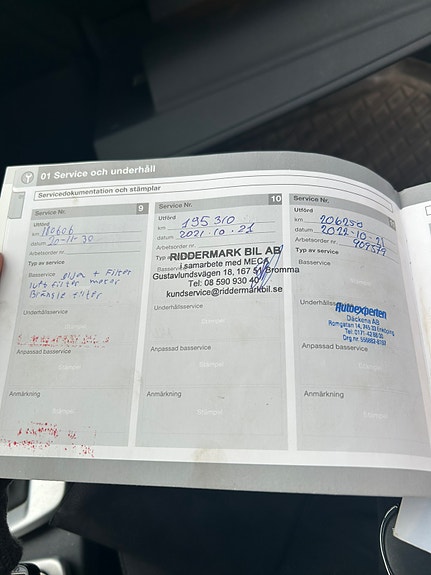 01 Service och underhåll
Servicedokumentation och stämplar
Service Nr. 9
Utförd
km 180606
datum 20-11-30
Arbetsorder nr.
Typ av service
Basservice olja + Filter
luft filter motor
Bränsle filter
Underhållsservice
Stämpel
Anpassad basservice
Stämpel
Anmärkning
Stämpel
Service Nr. 10
Utförd
km 195310
datum 2021.10.21
Arbetsorder nr.
RIDDERMARK BIL AB
I samarbete med MECA
Gustavlundsvägen 18, 167 51 Bromma
Tel: 08 590 930 40
kundservice@riddermarkbil.se
Underhållsservice
Stämpel
Anpassad basservice
Stämpel
Anmärkning
Stämpel
Service Nr.
Utförd
km 206250
datum 2022-10-21
Arbetsorder nr.
Typ av service
Basservice
Underhållsservice
Autoexperten
Däckona AB
Anpassad basservice
Stämpel
Anmärkning
Stämpel